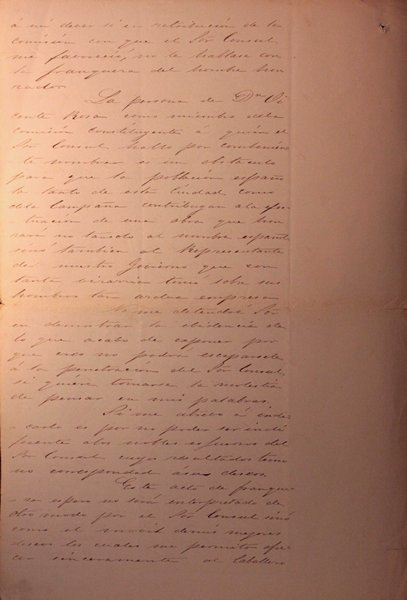 á mi deber si en retribucion de la
comision con que el Sor Consul
me favoreció, no le hablase con
la franqueza del hombre hon
rador.
La persona de Dn Vi
cente Rosa como miembro de la
comision Constituyente á quien el
Sor Consul halló por combeniente
nombrar es un obstaculo
para que la poblacion españo
la tanto de esta Ciudad como
dela Campaña contribuyan a la
de una obra que hon
rará no tan solo al nombre español
sinó tambien al Representante
de nuestro Gobierno que con
tanta bizarria tomó sobre sus
hombros tan ardua empresa.
No me detendré Sor
en demostrar la evidencia de
lo que acabo de esponer por
que creo no podrá escaparsele
á la penetracion del Sor Consul,
si quiere tomarse la molestia
de pensar en mis palabras.
Si me atrevo á
es por no poder ser indi
ferente a los nobles esfuerzos del
Sor Consul, cuyos resultados temo
no correspondan á sus deseos.
Este acto de franque
za espero no será interpretado de
otro modo por el Sor Consul sinó
como el de mis mejores
deseos los cuales me permito ofre
cer sinceramente al Caballero